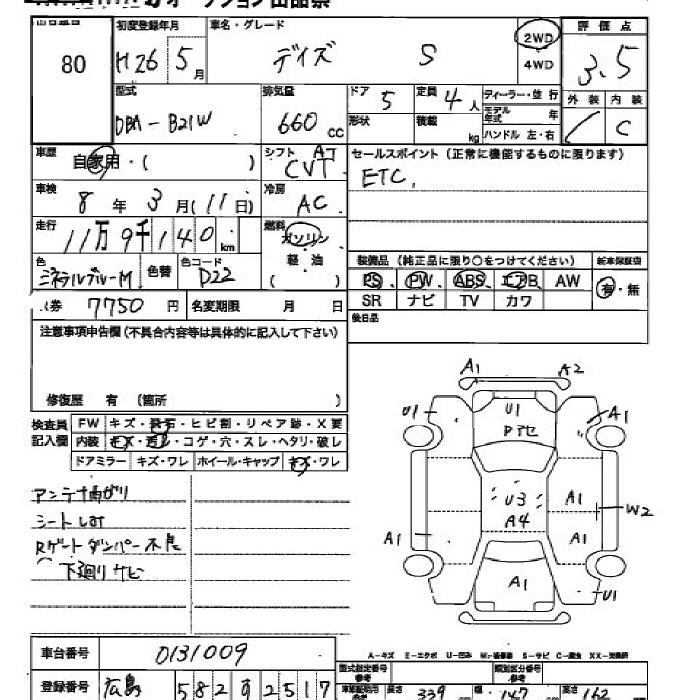 オークション出品票
初度登録年月 車名・グレード 評価点
80 H26 5月 デイズ S 2WD 4WD 3.5
外装 内装 C
型式 DBA-B21W 排気量 660 CC ドア 5 定員 4人 ディーラー・並行
形状 積載 kg モデル年式 年 ハンドル 左・右
車歴 自家用・( ) シフト AT CVT セールスポイント(正常に機能するものに限ります)
ETC.
車検 8年 3月(11日) 冷房 AC
走行 11万9千140 km 燃料 ガソリン 軽・油 ( )
色 ミネラルブルーM 色替 色コード D22
装備品(純正品に限り○をつけてください) 新車保証書
PS、PW、ABS、エアB、AW 有・無
SR ナビ TV カワ
券 7750円 名変期限 月 日 後日品
注意事項申告欄(不具合内容等は具体的に記入して下さい)
修復歴 有 (箇所 )
検査員記入欄 FW キズ・飛石・ヒビ割・リペア跡・X要
内装 キズ・汚れ・コゲ・穴・スレ・ヘタリ・破レ
ドアミラー キズ・ワレ ホイール・キャップ キズ・ワレ
A1 A2
U1 U1 A1
アンテナ曲がり
U3 A1 W2
A4
Rゲートダンパー不良
A1 A1
下廻りサビ
A1 U1
車台番号 0131009
A-キズ E-エクボ U-凹み
登録番号 広島 582 す 2517
型式指定番号 類別区分番号
長さ 339 cm 幅 147 高さ 162